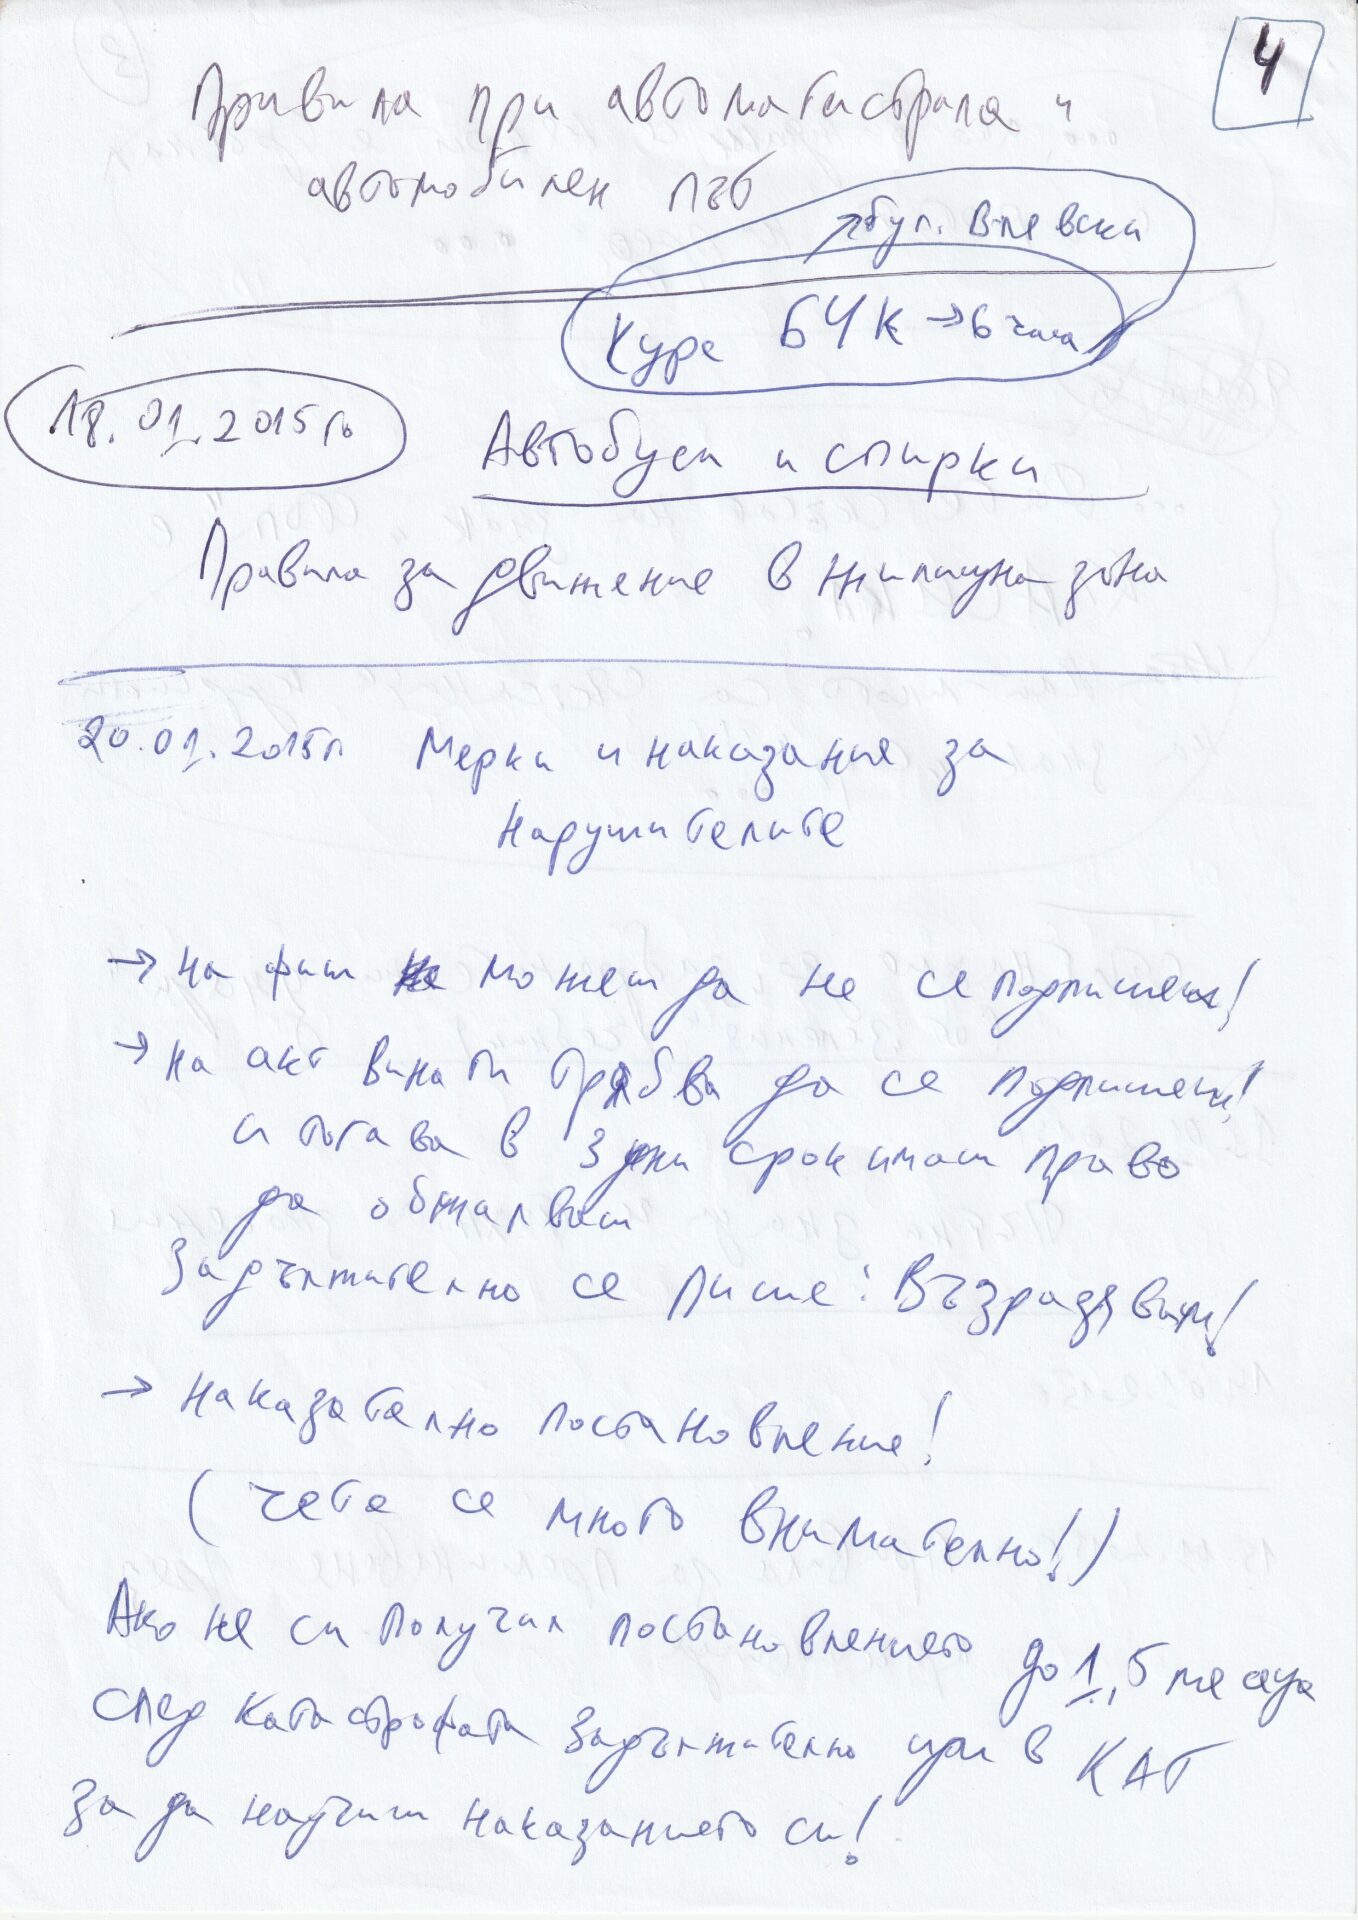 4
Правила при автомагистрала и
автомобилен път
→ бул. Влевски
Курс БЧК → 6 часа
18.01.2015г.
Автобуси и спирки
Правила за движение в жилищна зона
20.01.2015г. Мерки и наказания за
нарушителите
→ на фиш можеш да не се подпишеш!
→ на акт винаги трябва да се подпишеш!
и тогава в 3 дни срок имаш право
да обжалваш
Задължително се пише: Възразявам!
→ Наказателно постановление!
(чете се много внимателно!)
Ако не си получил постановлението до 1,5 месеца
след катастрофата задължително иди в КАТ
за да научиш наказанието си!